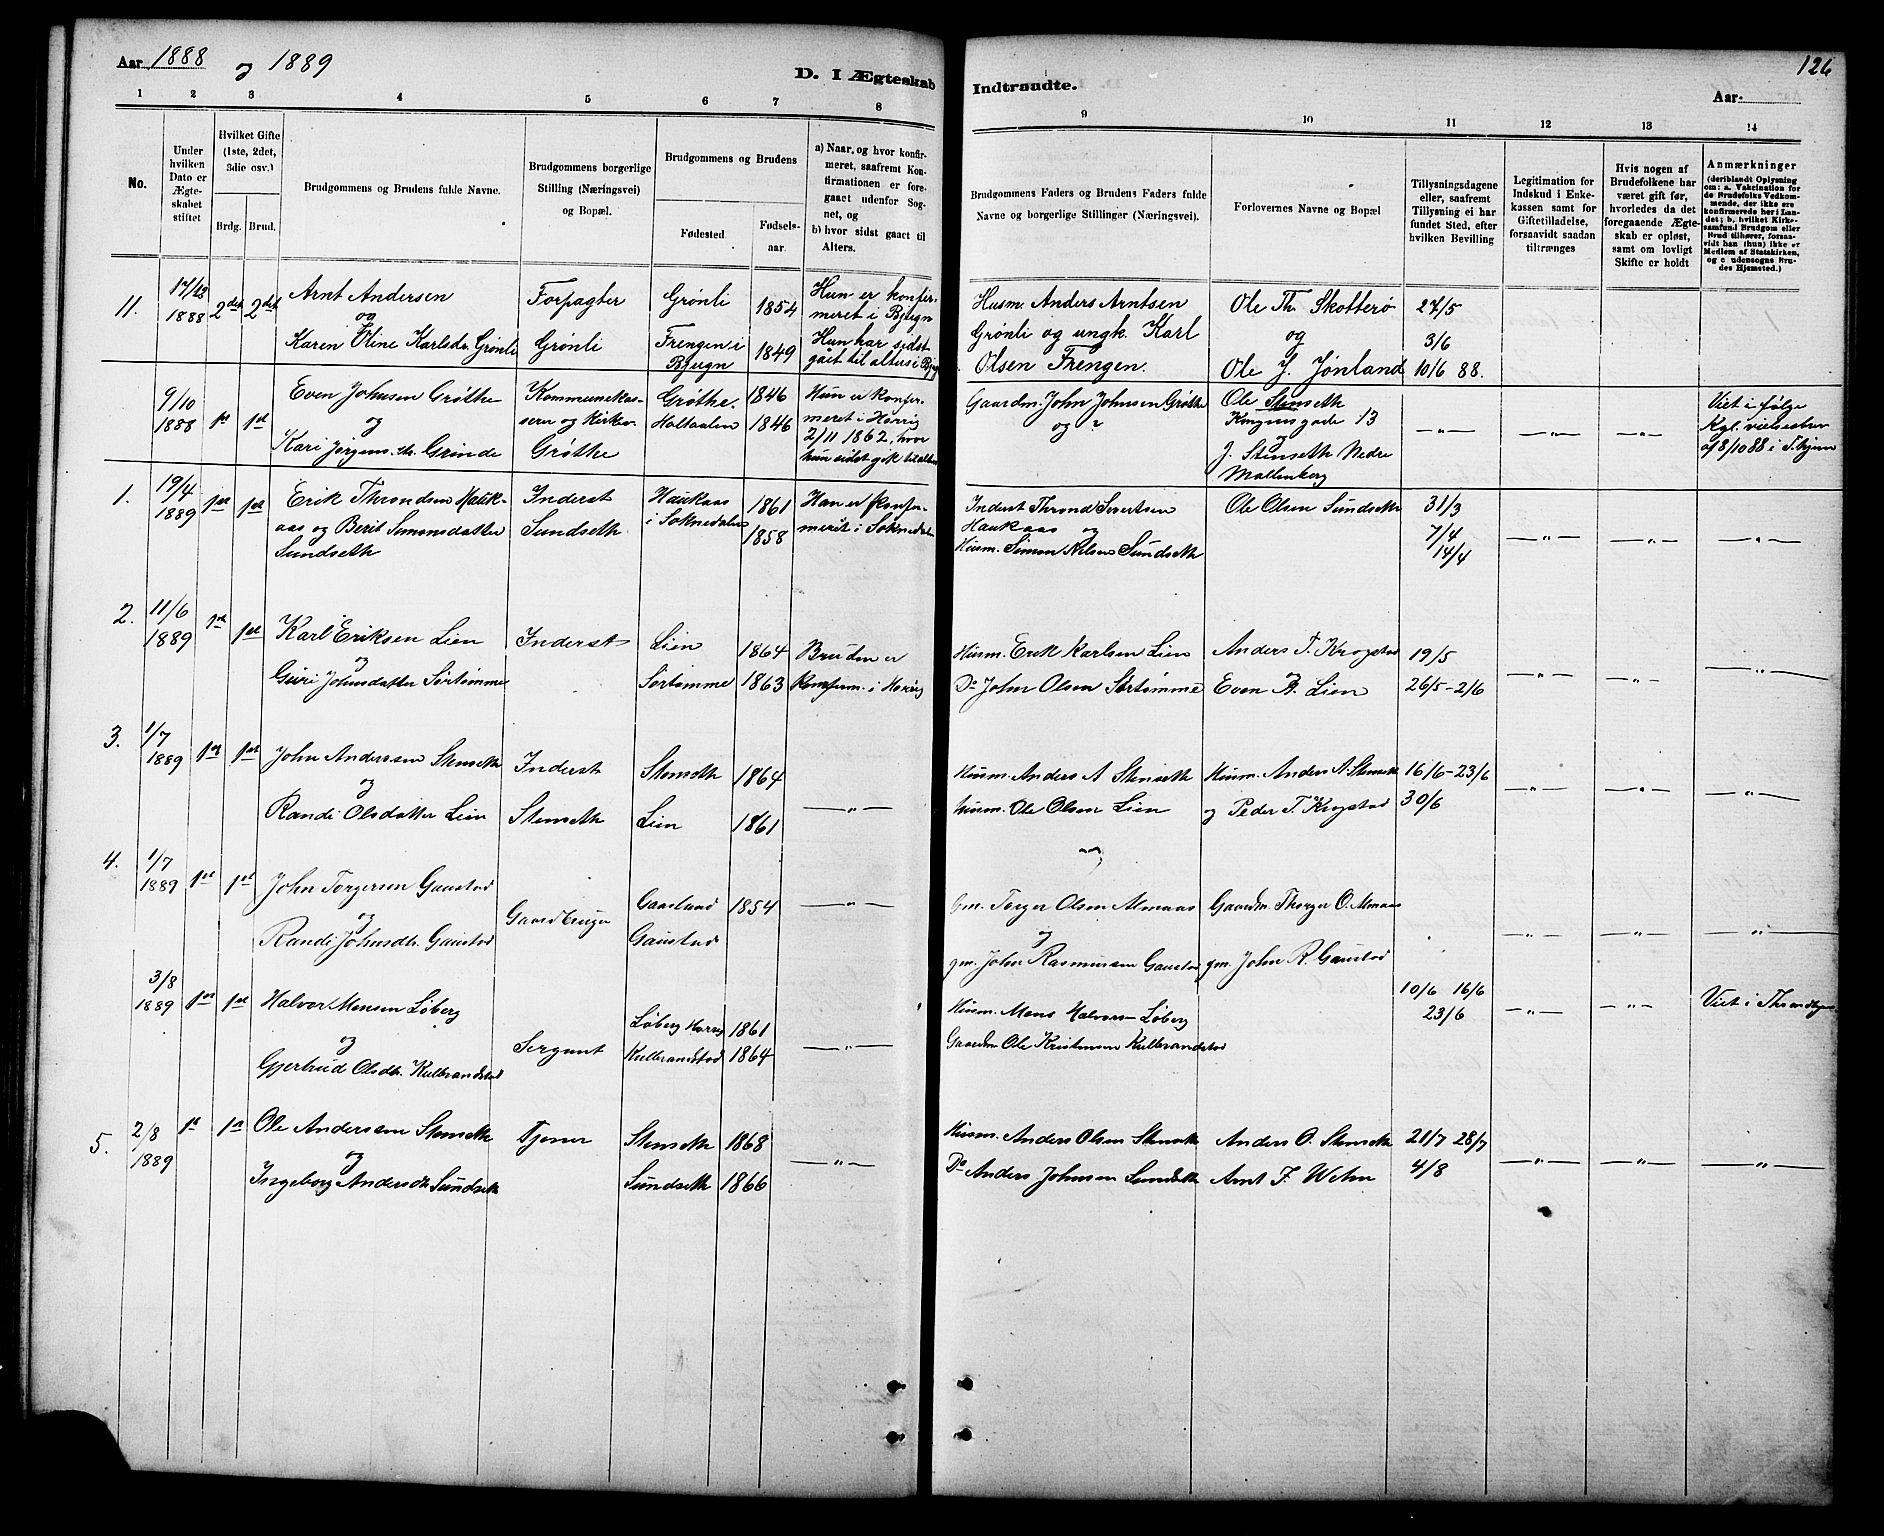 Aar 1888 og 1889
D. I Ægteskab Indtraadte.
126
Aar
1 2 3 4 5 6 7 8 9 10 11 12 13 14
No.
Under hvilken Dato er Ægteskabet stiftet
Hvilket Gifte (1ste, 2det, 3die osv.)
Brdg. Brud.
Brudgommens og Brudens fulde Navne.
Brudgommens borgerlige Stilling (Næringsvei) og Bopæl.
Brudgommens og Brudens
Fødested. Fødselsaar.
a) Naar, og hvor konfirmeret, saafremt Konfirmationen er foregaaet udenfor Sognet, og
b) hvor sidst gaaet til Alters.
Brudgommens Faders og Brudens Faders fulde Navne og borgerlige Stillinger (Næringsvei).
Forlovernes Navne og Bopæl
Tillysningsdagene eller, saafremt Tillysning ei har fundet Sted, efter hvilken Bevilling
Legitimation for Indskud i Enkekassen samt for Giftetilladelse, forsaavidt saadan tiltrænges
Hvis nogen af Brudefolkene har været gift før, hvorledes da det foregaaende Ægteskab er opløst, samt om lovligt Skifte er holdt
Anmærkninger
(deriblandt Oplysning om: a. Vakcination for de Brudefolks Vedkommende, der ikke ere konfirmerede her i Landet; b. hvilket Kirkesamfund Brudgom eller Brud tilhører, forsaavidt han (hun) ikke er Medlem af Statskirken, og c. udensogns Brudes Hjemsted.)
11. 1888 2det 2det Arnt Andersen og Karen Oline Karlsdr. Grønli
Forpagter Grønli
Grønli 1854
Frengen i Bjugn 1849
Hun er konfirmeret i Bjugn
Hun har sidst gaaet til alters i Bjug
Husm. Anders Arntsen Grønli og ungk. Karl Olsen Frengen.
Ole Th. Skotterø og Ole J. Jønland
27/5
3/6
10/6 88.
9/10 1888 1st 1st Even Johnsen Grøthe og Kari Jørgensdr. Grinde
Kommunekasserer og Kirkev. Grøthe
Grøthe. 1846
Holtaalen 1846
Hun er konfirmeret i Horrig 2/11 1862, hvor hun sidst gik til alters
Gaardm. John Johnsen Grøthe og ?
Ole Stenseth Kongensgade 13
og
J. Stenseth Nedre Mollenberg
—"— —"— —"—
Viet i følge Kgl. vielsesbrev af 8/10 88 i T.hjem
1. 19/4 1889 1st 1st Erik Throndsen Haukaas og Berit Simonsdatter Sundseth
Inderst Sundseth
Haukaas i Soknedalen 1861
1858
Han er konfirmerit i Soknedalen
Inderst Thrond Sivertsen Haukaas og
Husm. Simon Nilsen Sundseth
Ole Olsen Sundseth
31/3
7/4
14/4
—"— —"— —"—
2. 11/6 1889 1st 1st Karl Eriksen Lien og Guri Johnsdatter Sørtømme
Inderst
Lien 1864
Sørtømme 1863
Bruden er konfirm. i Horrig
Husm. Erik Karlsen Lien
Do John Olsen Sørtømme
Anders T. Krogstad og Even A. Lien
19/5
26/5 - 2/6
—"— —"— —"—
3. 1/7 1889 1st 1st John Anderssen Stenseth og Randi Olsdatter Lien
Inderst Stenseth
Stenseth 1864
Lien 1861
—"—
Husm. Anders A Stenseth
husm. Ole Olsen Lien
Husm. Anders A. Stenseth og Peder T. Krogstad
16/6 - 23/6
30/6
—"— —"— —"—
4. 1/7 1889 1st 1st John Torgersen Gaustad og Randi Johnsdtr. Gaustad
Gaardbruger
Gaasland 1854
Gaustad
—"—
Gm. Torger Olsen Almaas
og
gm. John Rasmussen Gaustad
Gaardm. Thorger O. Almaas
gm. John R. Gaustad
—"— —"— —"—
3/8 1889 1st 1st Halvor Monsen Løberg og Gjertrud Olsdtr. Kulbrandstad
Sergant
Løberg Horrig 1861
Kulbrandstad 1864
—"—
Husm. Mons Halvorsn Løberg
Gaardm Ole Kristensen Kulbrandstad
10/6 16/6
23/6
—"— —"—
Viet i Throndhjem
5. 2/8 1889 1st 1st Ole Anderssen Stenseth og Ingeborg Andersdtr Sundseth
Tjener
Stenseth 1868
Sundseth 1866
—"—
Husm. Anders Olsen Stenseth
Do Anders Johnsen Sundseth
Anders O. Stenseth
Arnt F. Wehn
21/7 28/7
4/8
—"— —"— —"—